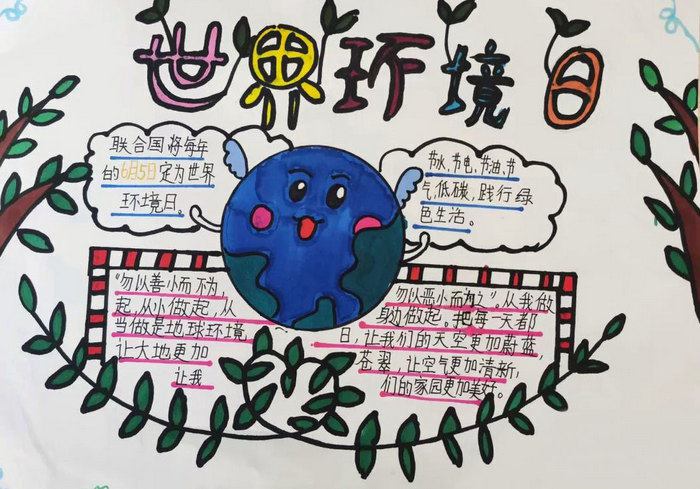 世界环境日
联合国将每年
的6月5日定为世界
环境日。
节水,节电,节油,节
气,低碳,践行绿
色生活。
"勿以善小而不为,
起,从小做起,从
当做是地球环境
让大地更加
让我
勿以恶小而为之"。从我做
身边做起。把每一天都
日,让我们的天空更加蔚蓝
苍翠,让空气更加清新,
们的家园更加美好。